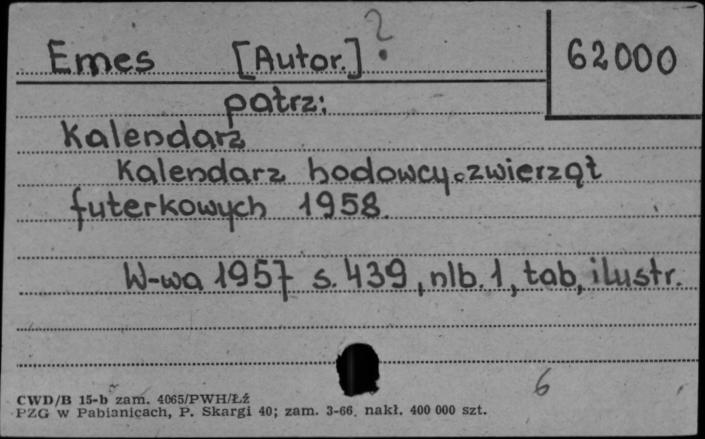 Emes [Autor.] ?
62000
patrz:
Kalendarz
Kalendarz hodowcy zwierząt
futerkowych 1958
W-wa 1957 s. 439, nlb. 1, tab, ilustr.
6
CWD/B 15-b zam. 4065/PWH/Łź
PZG w Pabianicach, P. Skargi 40; zam. 3-66. nakł. 400 000 szt.